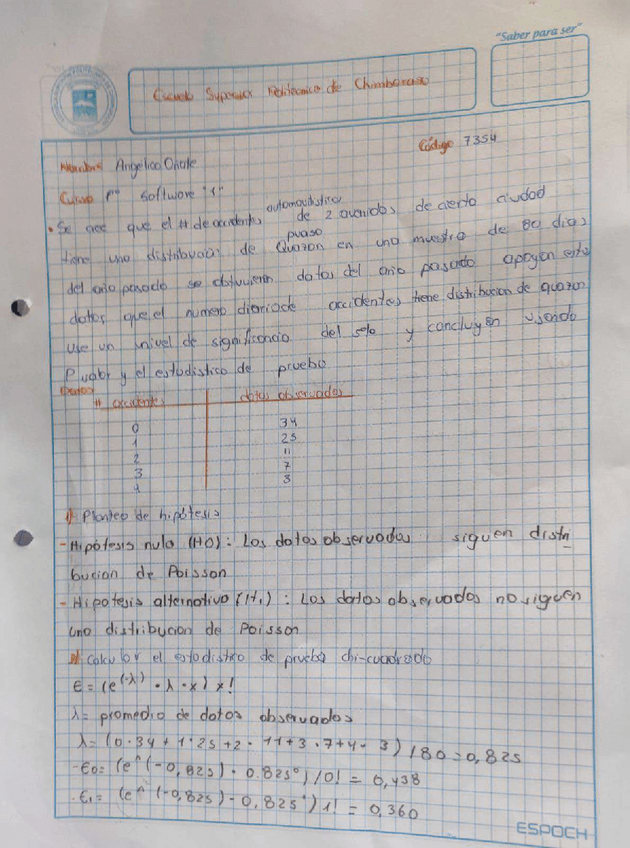 "Saber para ser"
Escuela Superior Politecnica de Chimborazo
Código 7354
Nombre Angelica Oñate
Curso Software "1"
automovilistico
• Se cree que el # de accidentes de 2 avenidas de cierta ciudad
tiene una distribucion de en una muestra de 80 dias
del año pasado se obtuvieron datos del año pasado apoyan estos
datos que el numero diario de accidentes tiene distribucion de
use un nivel de significancia del y concluyen usando
P valor y el estadistico de prueba
Datos
# accidentes datos observados
0 34
1 25
2 11
3 7
4 3
1) Planteo de hipótesis
- Hipótesis nula (H0): Los datos observados siguen distri
bucion de Poisson
- Hipotesis alternativa (H1): Los datos observados no siguen
una distribucion de Poisson
2) Calcular el estadistico de prueba chi-cuadrado
E = (e^(-λ) • λ • x) x!
λ = promedio de datos observados
λ = (0·34 + 1·25 + 2·11 + 3·7 + 4·3) / 80 = 0,825
- E0 = (e^(-0,825) · 0.825°) / 0! = 0,438
· E1 = (e^(-0,825) - 0,825¹) 1! = 0,360
ESPOCH